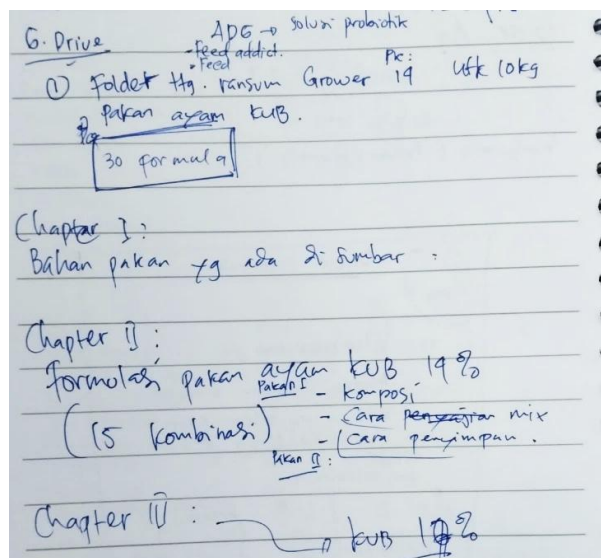 G. Drive
ADG → solusi probiotik
- Feed addict.
• Feed
① Folder ttg. ransum Grower Pk: 19 utk 10kg
Pakan ayam KUB.
30 formula
Chapter I :
Bahan pakan yg ada di Sumbar .
Chapter II :
Formulasi pakan ayam KUB 19%
Pakan I - Komposi
(15 Kombinasi) - Cara penyajian mix
- Cara penyimpan .
Pakan II :
Chapter III : KUB %